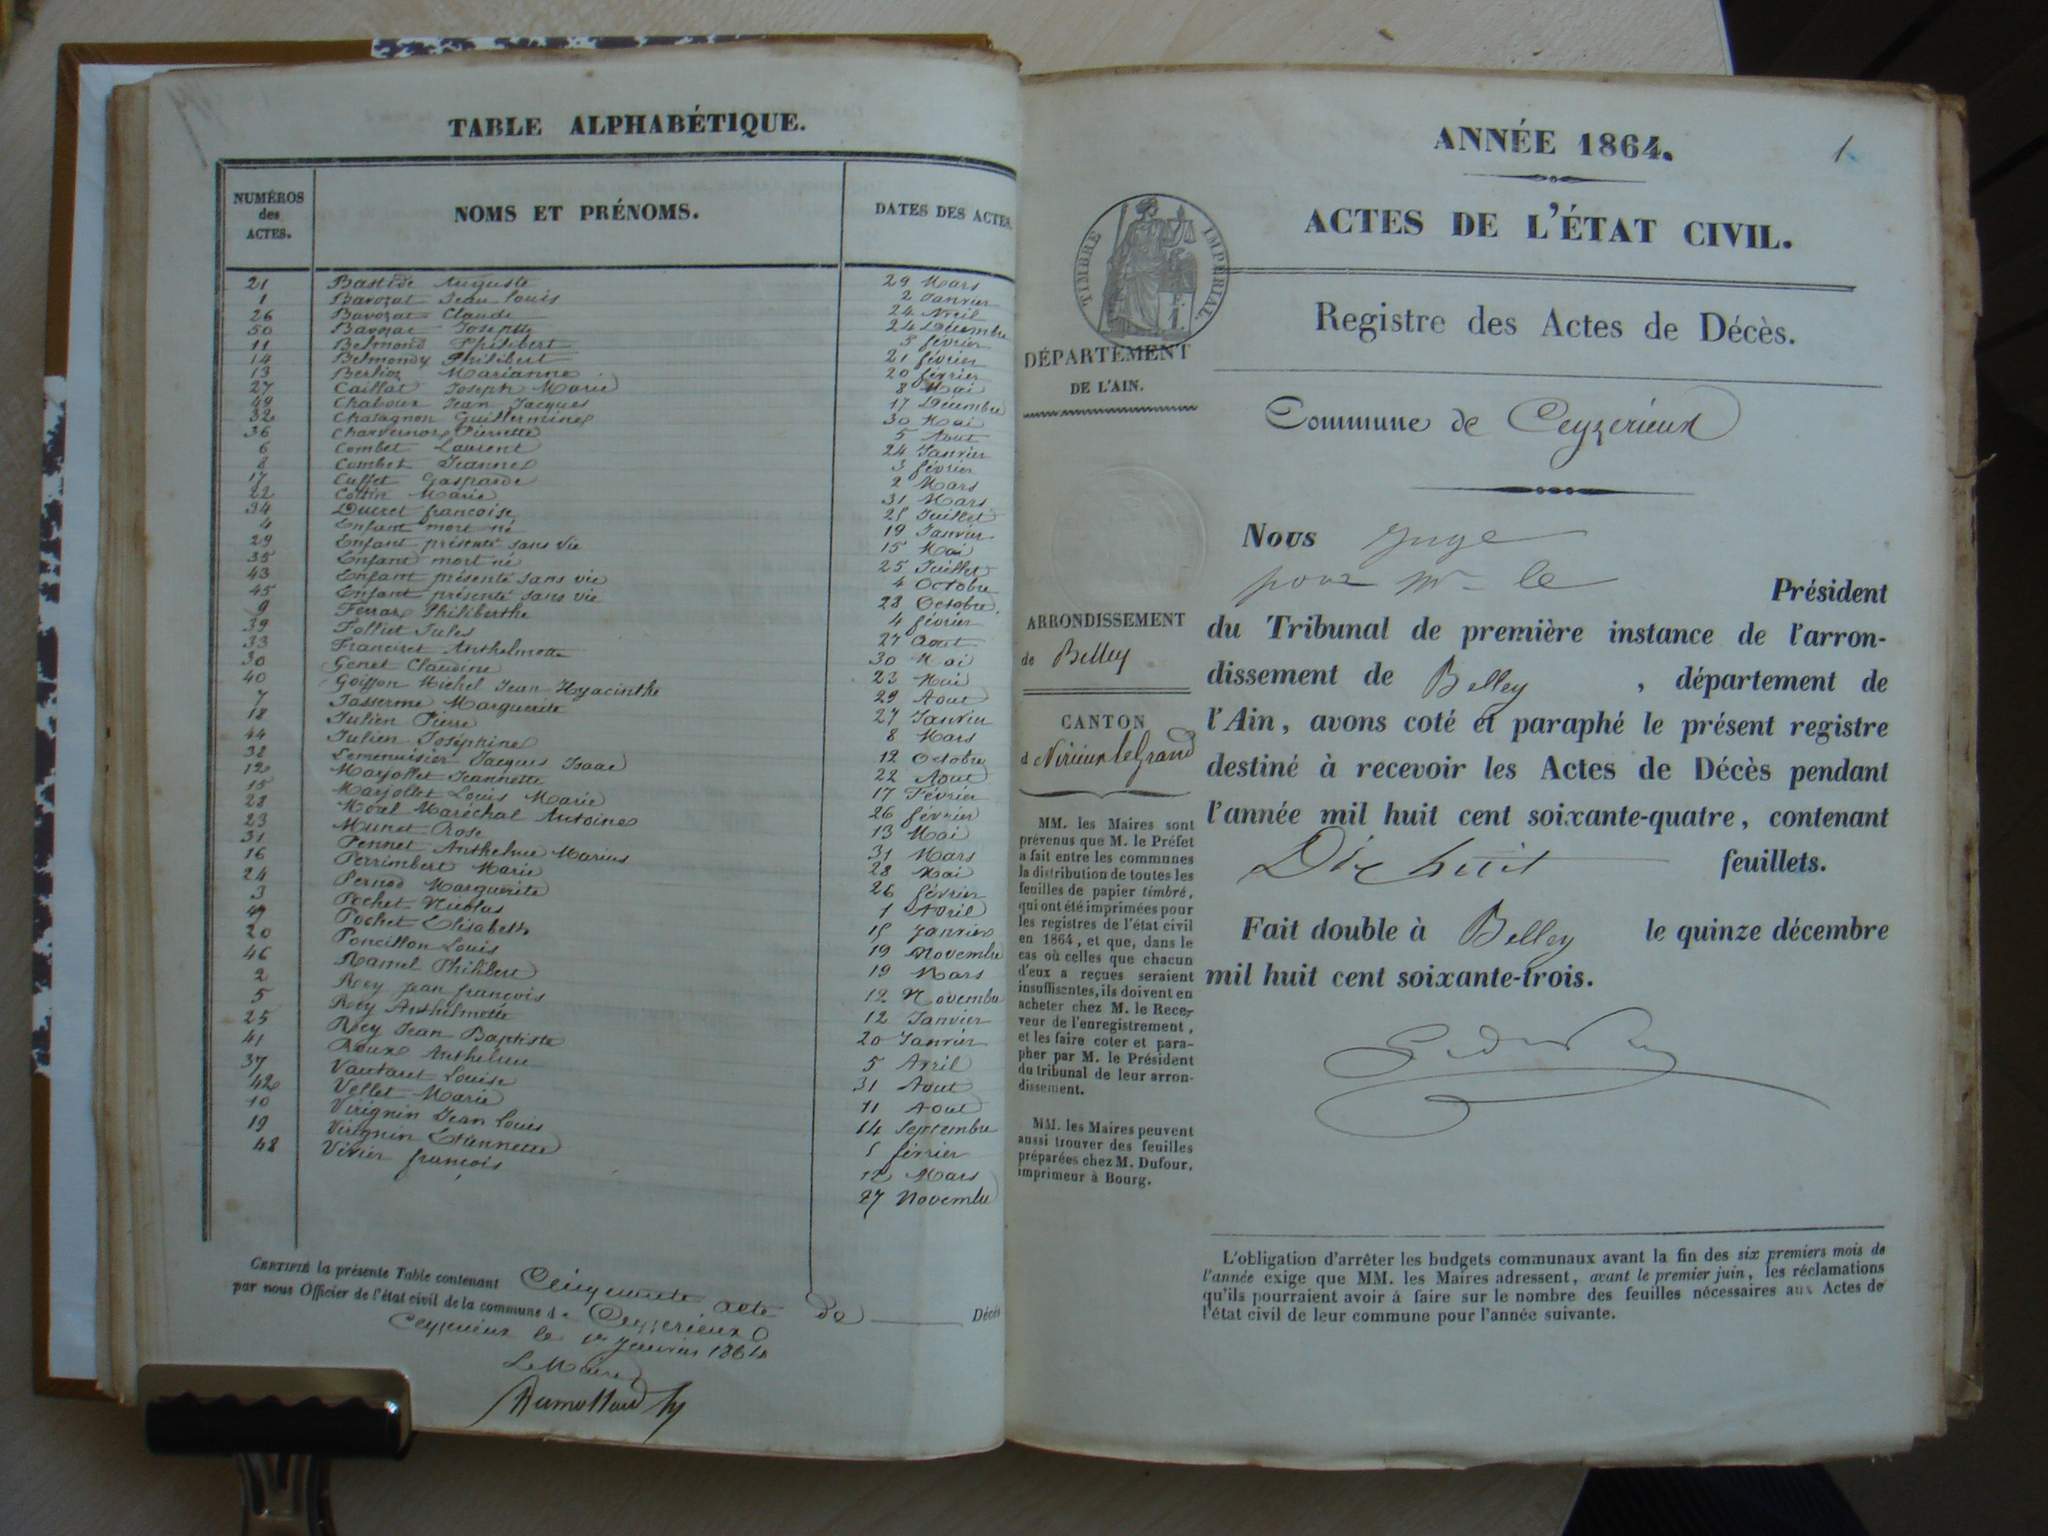 TABLE ALPHABÉTIQUE.
NUMÉROS des ACTES. NOMS ET PRÉNOMS. DATES DES ACTES.
21 Bastide Auguste 29 Mars
1 Bavozat Jean Louis 2 Janvier
26 Bavozat Claude 24 Avril
50 Bavozat Joseph 24 Décembre
11 Belmond Philibert 5 février
14 Belmondy Philibert 21 février
13 Berlioz Marianne 20 février
27 Caillat Joseph Marie 8 Mai
49 Chaboux Jean Jacques 17 Décembre
32 Chatagnon Guillermine 30 Mai
36 Charvernox Pierrette 5 Aout
6 Combet Laurent 24 Janvier
8 Combet Jeanne 3 février
17 Cuffet Gasparde 2 Mars
22 Cottin Marie 31 Mars
34 Ducret françoise 21 Juillet
4 Enfant mort né 19 Janvier
29 Enfant présenté sans vie 15 Mai
35 Enfant mort né 25 Juillet
43 Enfant présenté sans vie 4 Octobre
45 Enfant présenté sans vie 28 Octobre
9 Ferrax Philiberthe 4 février
39 Folliet Jules 27 Aout
33 Francixt Anthelmette 30 Mai
30 Genet Claudine 23 Mai
40 Goiffon Michel Jean Hyacinthe 29 Aout
7 Jasserme Marguerite 27 Janvier
18 Julien Pierre 8 Mars
44 Julien Joséphine 12 Octobre
38 Lemenuisier Jacques Isaac 22 Aout
12 Marjollet Jeannette 17 Février
15 Marjollet Louis Marie 26 février
28 Morel Maréchal Antoine 13 Mai
23 Munet Rose 31 Mars
31 Pennet Anthelme Marius 28 Mai
16 Perrimbert Marie 26 février
24 Pernod Marguerite 1 Avril
3 Pochet Nicolas 15 Janvier
47 Pochet Elisabeth 19 Novembre
20 Poncillon Louis 19 Mars
46 Ramel Philibert 12 Novembre
2 Rey jean françois 12 Janvier
5 Rey Anthelmette 20 Janvier
25 Rey Jean Baptiste 5 Avril
41 Roux Anthelme 31 Aout
37 Vautaret Louise 11 Aout
42 Vellet Marie 14 Septembre
10 Virignin Jean Louis 5 février
19 Virignin Etiennette 12 Mars
48 Vivier françois 27 Novembre
CERTIFIÉ la présente Table contenant Cinquante acte de Décès
par nous Officier de l'état civil de la commune de Ceyzerieux
Ceyzerieux le 1er Janvier 1864
Le Maire
1
ANNÉE 1864.
ACTES DE L'ÉTAT CIVIL.
TIMBRE IMPÉRIAL.
Registre des Actes de Décès.
DÉPARTEMENT
DE L'AIN.
Commune de Ceyzerieux
ARRONDISSEMENT
de Belley
CANTON
d Virieux le Grand
MM. les Maires sont
prévenus que M. le Préfet
a fait entre les communes
la distribution de toutes les
feuilles de papier timbré,
qui ont été imprimées pour
les registres de l'état civil
en 1864, et que, dans le
cas où celles que chacun
d'eux a reçues seraient
insuffisantes, ils doivent en
acheter chez M. le Rece-
veur de l'enregistrement,
et les faire coter et para-
pher par M. le Président
du tribunal de leur arron-
dissement.
MM. les Maires peuvent
aussi trouver des feuilles
préparées chez M. Dufour,
imprimeur à Bourg.
Nous Juge
pour Mr le Président
du Tribunal de première instance de l'arron-
dissement de Belley, département de
l'Ain, avons coté et paraphé le présent registre
destiné à recevoir les Actes de Décès pendant
l'année mil huit cent soixante-quatre, contenant
Dix huit feuillets.
Fait double à Belley le quinze décembre
mil huit cent soixante-trois.
L'obligation d'arrêter les budgets communaux avant la fin des six premiers mois de
l'année exige que MM. les Maires adressent, avant le premier juin, les réclamations
qu'ils pourraient avoir à faire sur le nombre des feuilles nécessaires aux Actes de
l'état civil de leur commune pour l'année suivante.